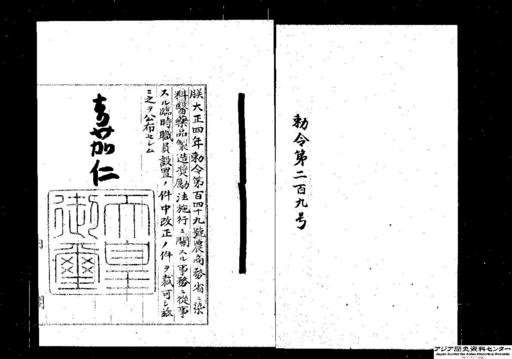 勅令第二百九号
朕大正四年勅令第百四十九號農商務省ニ染
料醫藥品製造奬勵法施行ニ關スル事務ニ從事
スル臨時職員設置ノ件中改正ノ件ヲ裁可シ玆
ニ之ヲ公布セシム
嘉仁
天皇御璽
内閣
アジア歴史資料センター
Japan Center for Asian Historical Records